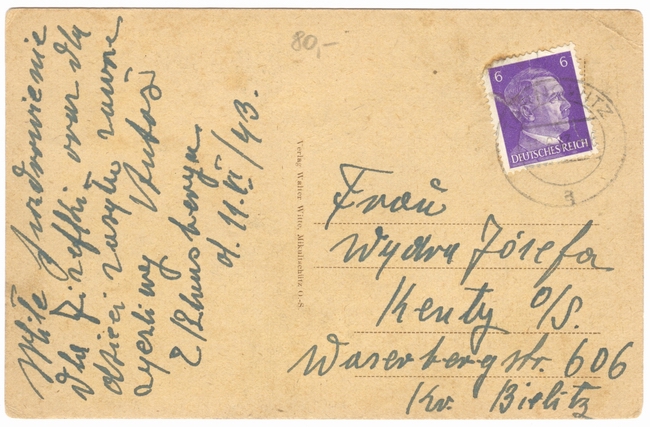 80,-
Miłe Pozdrowienie
dla Ziefki oraz dla
dzieci zasyła zawsze
życzliwy Antoś
z
d. 11 VI/43.
Verlag Walter Witto, Mikultschütz O.-S.
6 6
DEUTSCHES REICH
Frau
Wydra Józefa
Kenty O/S.
Waserbergstr. 606
Kr. Bielitz